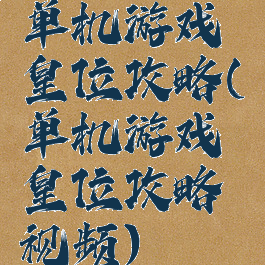 单机游戏
皇位攻略(
单机游戏
皇位攻略
视频)